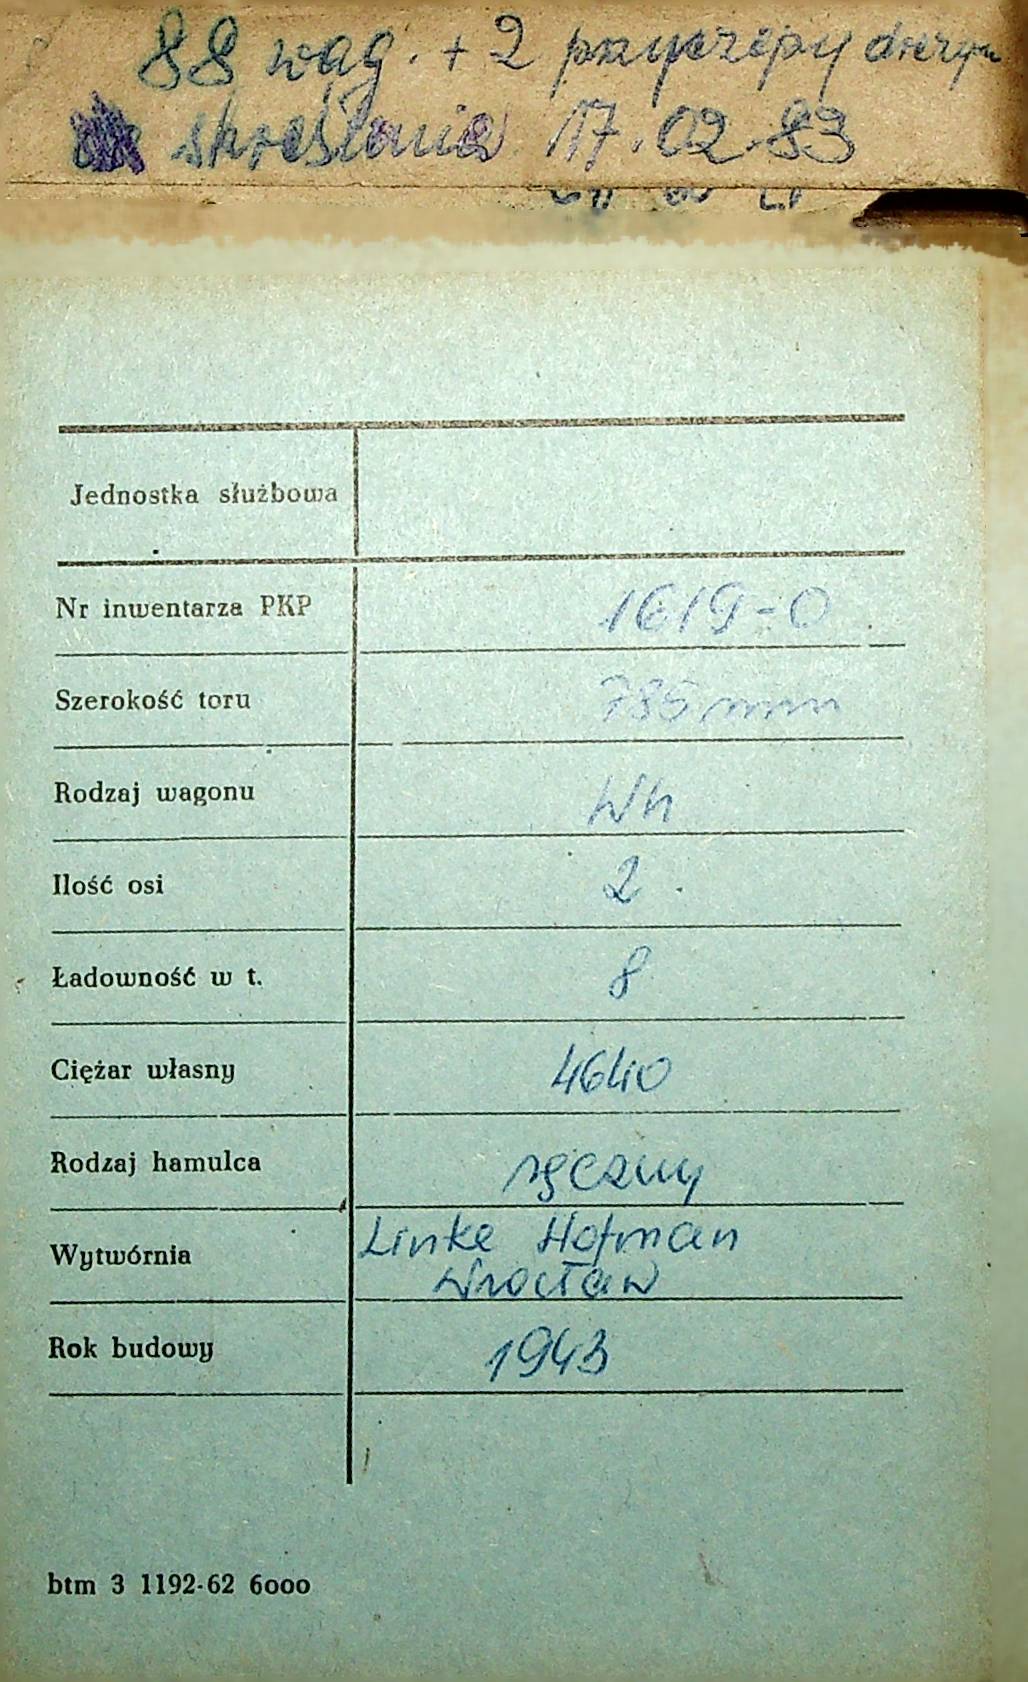 88 wag. + 2 przyczepy drezyn
skreślenia 17.02.83
Jednostka służbowa
Nr inwentarza PKP 1619-0
Szerokość toru 785 mm
Rodzaj wagonu Wh
Ilość osi 2
Ładowność w t. 8
Ciężar własny 4640
Rodzaj hamulca ręczny
Wytwórnia Linke Hofman
Wrocław
Rok budowy 1943
btm 3 1192-62 6000